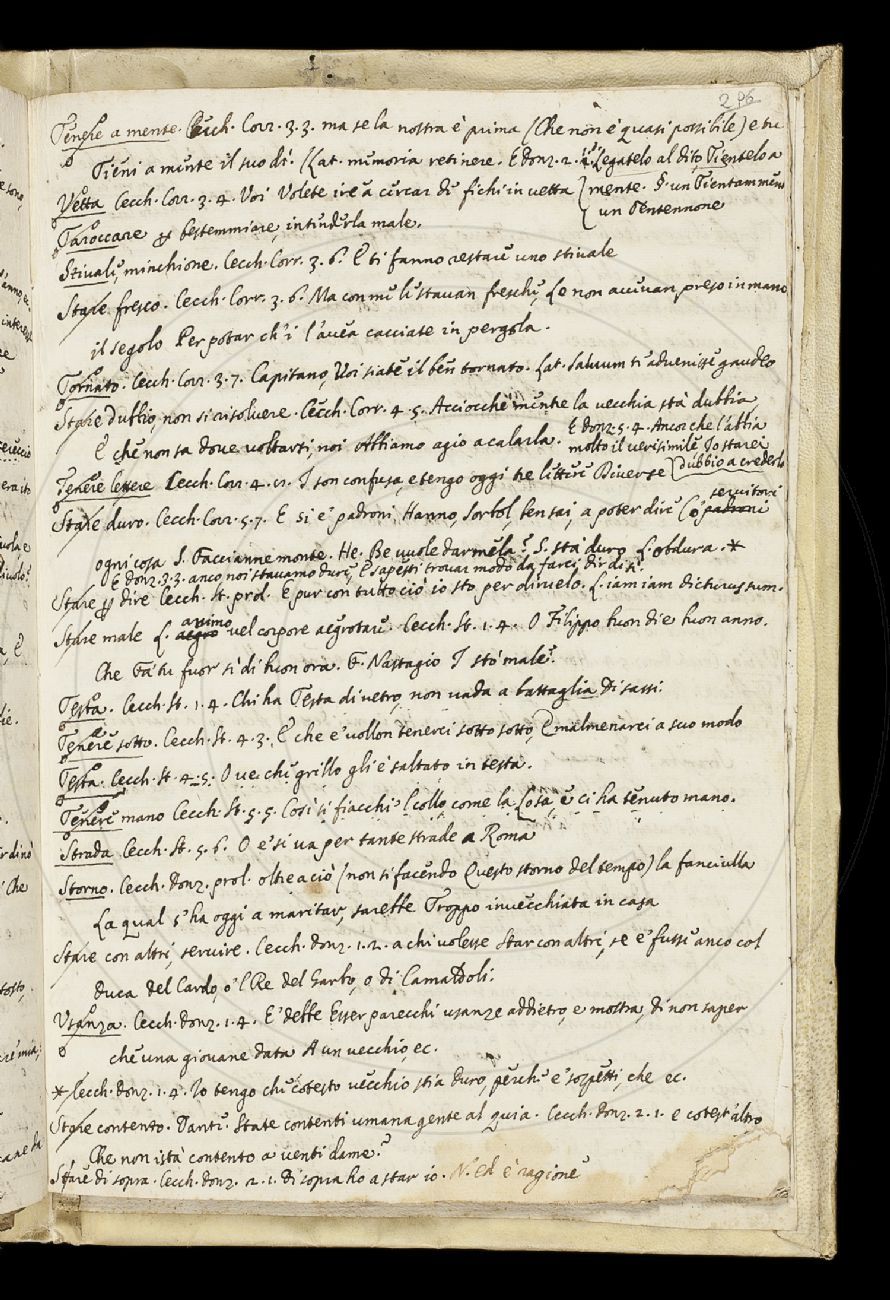 296
Tenere a mente. Cecch. Corr. 3. 3. ma se la nostra è prima (Che non è quasi possibile) e tu
Tieni a mente il suo dì. (Lat. memoria retinere. E Donz. 2. Legatelo al dito, Tientelo a
mente. §. un Tientammente
un Pentennone
Vetta Cecch. Corr. 3. 4. Voi Volete ire a cercar de fichi in vetta
Taroccare p bestemmiare, intenderla male.
Stivale, minchione. Cecch. Corr. 3. 6. E ti fanno restare uno stivale
Stare fresco. Cecch. Corr. 3. 6. Ma con me li stavan freschi, se non avevan preso in mano
il segolo Per potar ch'i' l'avea cacciate in pergola.
Tornato. Cecch. Corr. 3. 7. Capitano, Voi siate il ben tornato. Lat. Salvum te advenisse gaudeo
Stare dubbio, non si risolvere. Cecch. Corr. 4. 5. Acciocchè mentre la vecchia sta dubbia
E che non sa dove voltarsi, noi Abbiamo agio a calarla.
E Donz. 5. 4. Ancor che l'abbia
molto il verisimile Io starei
dubbio a crederlo
Tenere lettere Cecch. Corr. 4. 11. I son confusa, e tengo oggi tre lettere Diverse
Stare duro. Cecch. Corr. 5. 7. E si e' padroni Hanno, sortol, ben sai, a poter dire (o padroni
servitori
ogni cosa S. Faccianne monte. He. Be vuole darmela? S. sta duro L. obdura. *
E Donz. 3. 3. anco, noi stavamo duri, E sapesti trovar modo da farci dir di sì.
Stare p dire Cecch. St. prol. E pur con tutto ciò io sto per dirvelo. L. iam iam dicturus sum.
Stare male L. aegro animo vel corpore aegrotare. Cecch. St. 1. 4. O Filippo buon dì e buon anno.
Che Fa' tu fuor sì di buon ora. F. Nastagio I sto male.
Testa. Cecch. St. 1. 4. Chi ha Testa di vetro, non vada a battaglia Di sassi.
Tenere sotto. Cecch. St. 4. 3. E che e' vollon tenerci sotto sotto, E malmenarci a suo modo
Testa. Cecch. St. 4. 5. O ve che grillo gli è saltato in testa.
Tenere mano Cecch. St. 5. 5. Così si fiacchi 'l collo, come la Cosa, e ci ha tenuto mano.
Strada Cecch. St. 5. 6. O e' si va per tante strade a Roma
Storno. Cecch. Donz. prol. oltre a ciò (non si facendo Questo storno del tempo) la fanciulla
La qual s'ha oggi a maritar, sarebbe Troppo invecchiata in casa
Stare con altri, servire. Cecch. Donz. 1. 2. a chi volesse Star con altri, se e' fussi anco col
Duca del Cardo, o 'l Re del Garbo, o di Camaldoli.
Usanza. Cecch. Donz. 1. 4. E' debbe Esser parecchi usanze addietro, e mostra, di non saper
che una giovane data A un vecchio, ec.
* Cecch. Donz. 1. 4. Io tengo che cotesto vecchio stia duro, perchè e' sospetti, che ec.
Stare contento. Dante. State contenti umana gente al quia. Cecch. Donz. 2. 1. e cotest'altro
Che non istà contento a venti dame?
Stare di sopra. Cecch. Donz. 2. 1. Di sopra ho a star io. N. Ed è ragione